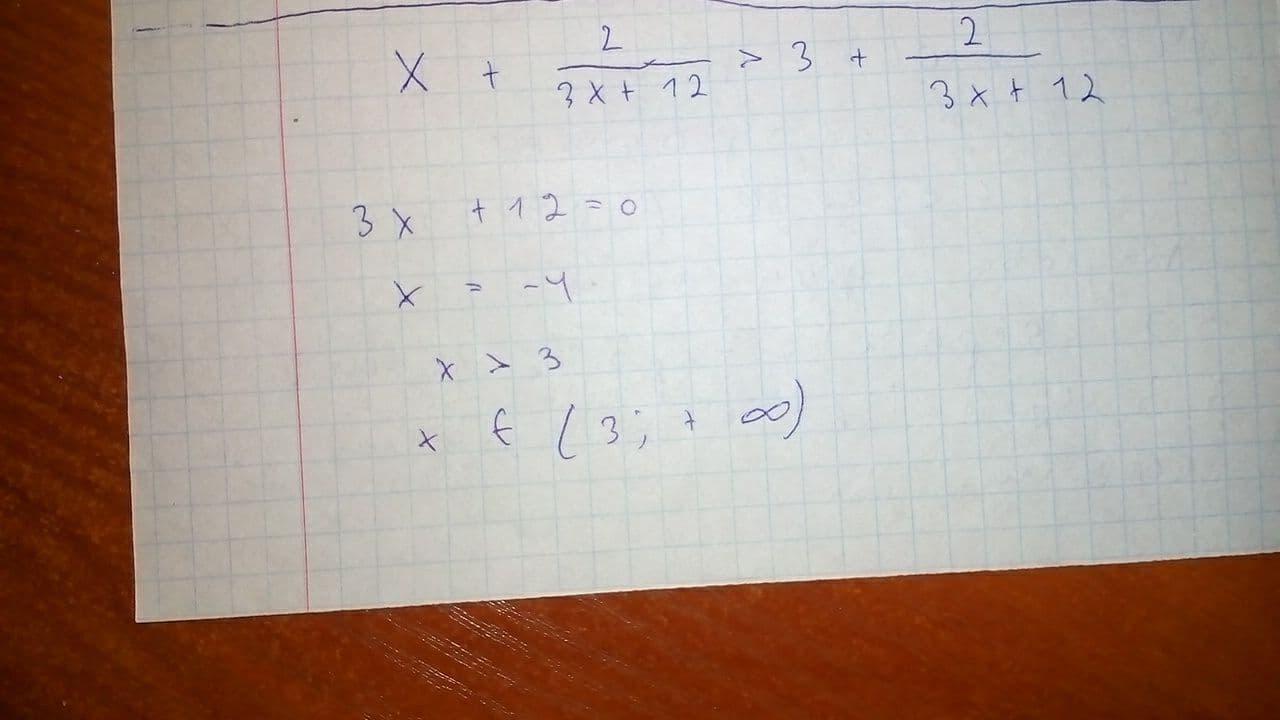 x + 2/(3x + 12) > 3 + 2/(3x + 12)
3x + 12 = 0
x = -4
x > 3
x ∈ (3; + ∞)